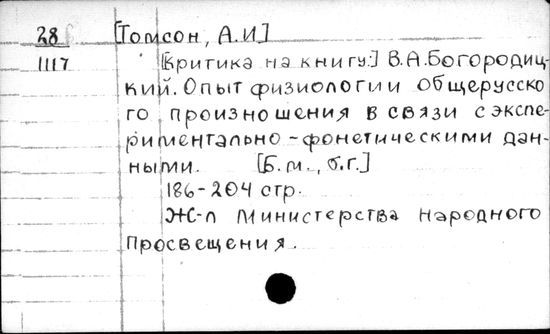 28 [Томсон, А.И]
1117 [Критика на книгу:] В.А.Богородиц-
кий. Опыт физиологии общерусско
го произношения в связи с экспе-
риментально-фонетическими дан-
ными. [Б.м., б.г.]
186-204 стр.
Ж-л Министерства народного
просвещения.